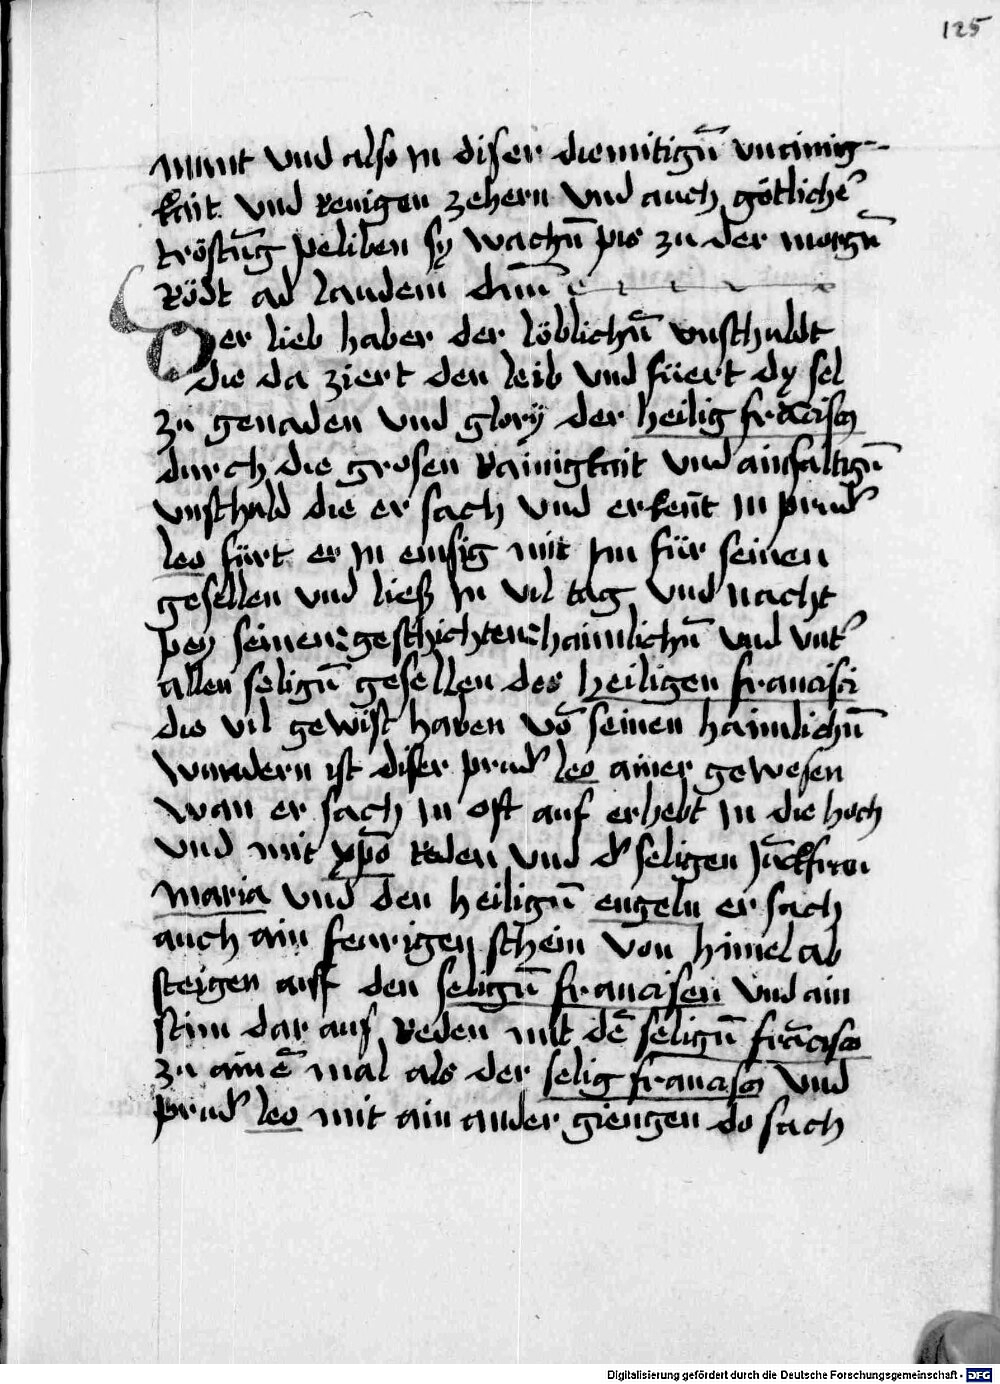 125
nimt und also in diser diemitigū vnainig-
kait und Renigen zehern und auch götlich̄e
tröstūg peliben sy wachū pis zu der morgū
Rödt ad laudem dnī
Der lieb haber der löblichū vnschuldt
die da ziert den leib und füert dy sel
zu genaden und glorÿ der heilig frācisco
durch die grosen Rainigkait und ainfaltigū
vnschuld die er sach und erkēnt in prud̄
leo fürt er in emsig mit im für seinen
gesellen und ließ in vil tag und nacht
pey seinen geschichten haimlichū und vnt̄
allen seligū gesellen des heiligen francisci
die vil gewist haben vō seinen haimlichū
wundern ist diser prud̄ leo ainer gewesen
wan er sach in oft auf erhebt in die hoch
und mit xp̄o Reden und d̄ seligen Jūckfrau
maria und den heiligū engeln er sach
auch ain feurigen schein von himel ab
steigen auff den seligū francisen und ain
stim dar auf Reden mit dē seligū frācisco
zu ainē mal als der selig francisco und
prud̄ leo mit ain ander giengen do sach
Digitalisierung gefördert durch die Deutsche Forschungsgemeinschaft - DFG